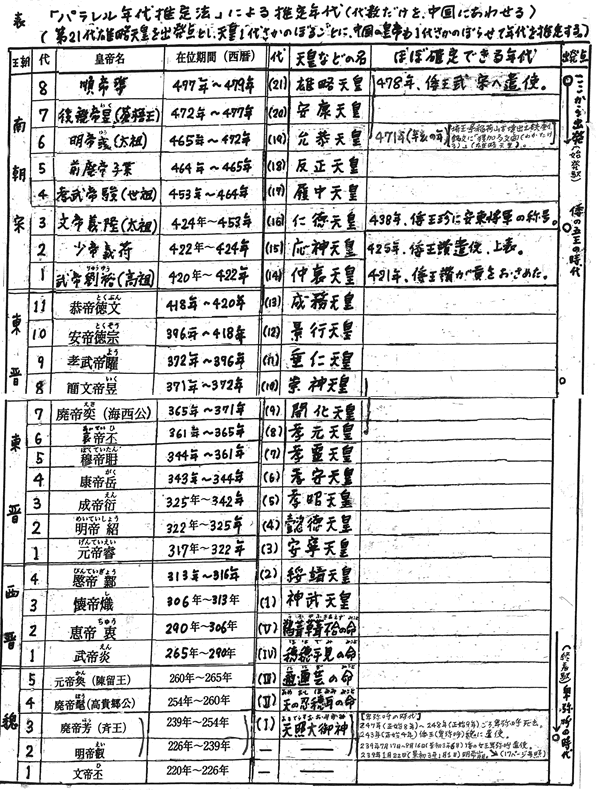 表 「パラレル年代推定法」による推定年代(代数だけを、中国にあわせる)
(第21代雄略天皇を出発点とし、天皇1代さかのぼるごとに、中国の皇帝も1代さかのぼらせて年代を推定する。)
王朝 代 皇帝名 在位期間(西暦) 代 天皇などの名 ほぼ確定できる年代 出発点
南朝宋
8 順帝準 477年〜479年 (21) 雄略天皇 478年、倭王武 宋へ遣使。
7 後廃帝昱(蒼梧王) 472年〜477年 (20) 安康天皇
6 明帝彧(太祖) 465年〜472年 (19) 允恭天皇 471年(辛亥の年)
5 前廃帝子業 464年〜465年 (18) 反正天皇
4 孝武帝駿(世祖) 453年〜464年 (17) 履中天皇
3 文帝義隆(太祖) 424年〜453年 (16) 仁徳天皇 438年、倭王珍に安東将軍の称号。
2 少帝義符 422年〜424年 (15) 応神天皇 425年、倭王讃遣使、上表。
1 武帝劉裕(高祖) 420年〜422年 (14) 仲哀天皇 421年、倭王讃が貢をおさめた。
ここから出発(始発駅)
倭の五王の時代
東晋
11 恭帝徳文 418年〜420年 (13) 成務天皇
10 安帝徳宗 396年〜418年 (12) 景行天皇
9 孝武帝曜 372年〜396年 (11) 垂仁天皇
8 簡文帝昱 371年〜372年 (10) 崇神天皇
東晋
7 廃帝奕(海西公) 365年〜371年 (9) 開化天皇
6 哀帝丕 361年〜365年 (8) 孝元天皇
5 穆帝耼 344年〜361年 (7) 孝霊天皇
4 康帝岳 343年〜344年 (6) 孝安天皇
3 成帝衍 325年〜342年 (5) 孝昭天皇
2 明帝紹 322年〜325年 (4) 懿徳天皇
1 元帝睿 317年〜322年 (3) 安寧天皇
西晋
4 愍帝鄴 313年〜316年 (2) 綏靖天皇
3 懐帝熾 306年〜313年 (1) 神武天皇
2 恵帝衷 290年〜306年 (V)
1 武帝炎 265年〜290年 (IV) 穂穂手見の命
魏
5 元帝奐(陳留王) 260年〜265年 (III) 邇邇芸の命
4 廃帝髦(高貴郷公) 254年〜260年 (II) 天の忍穂耳の命
3 廃帝芳(斉王) 239年〜254年 (I) 天照大御神 【卑弥呼の時代】
247年(正始8年)〜248年(正始9年)ごろ卑弥呼死去。
243年(正始4年)倭王(卑弥呼)魏に遣使。
2 明帝叡 226年〜239年 — —
1 文帝丕 220年〜226年 — —
(終着駅)卑弥呼の時代